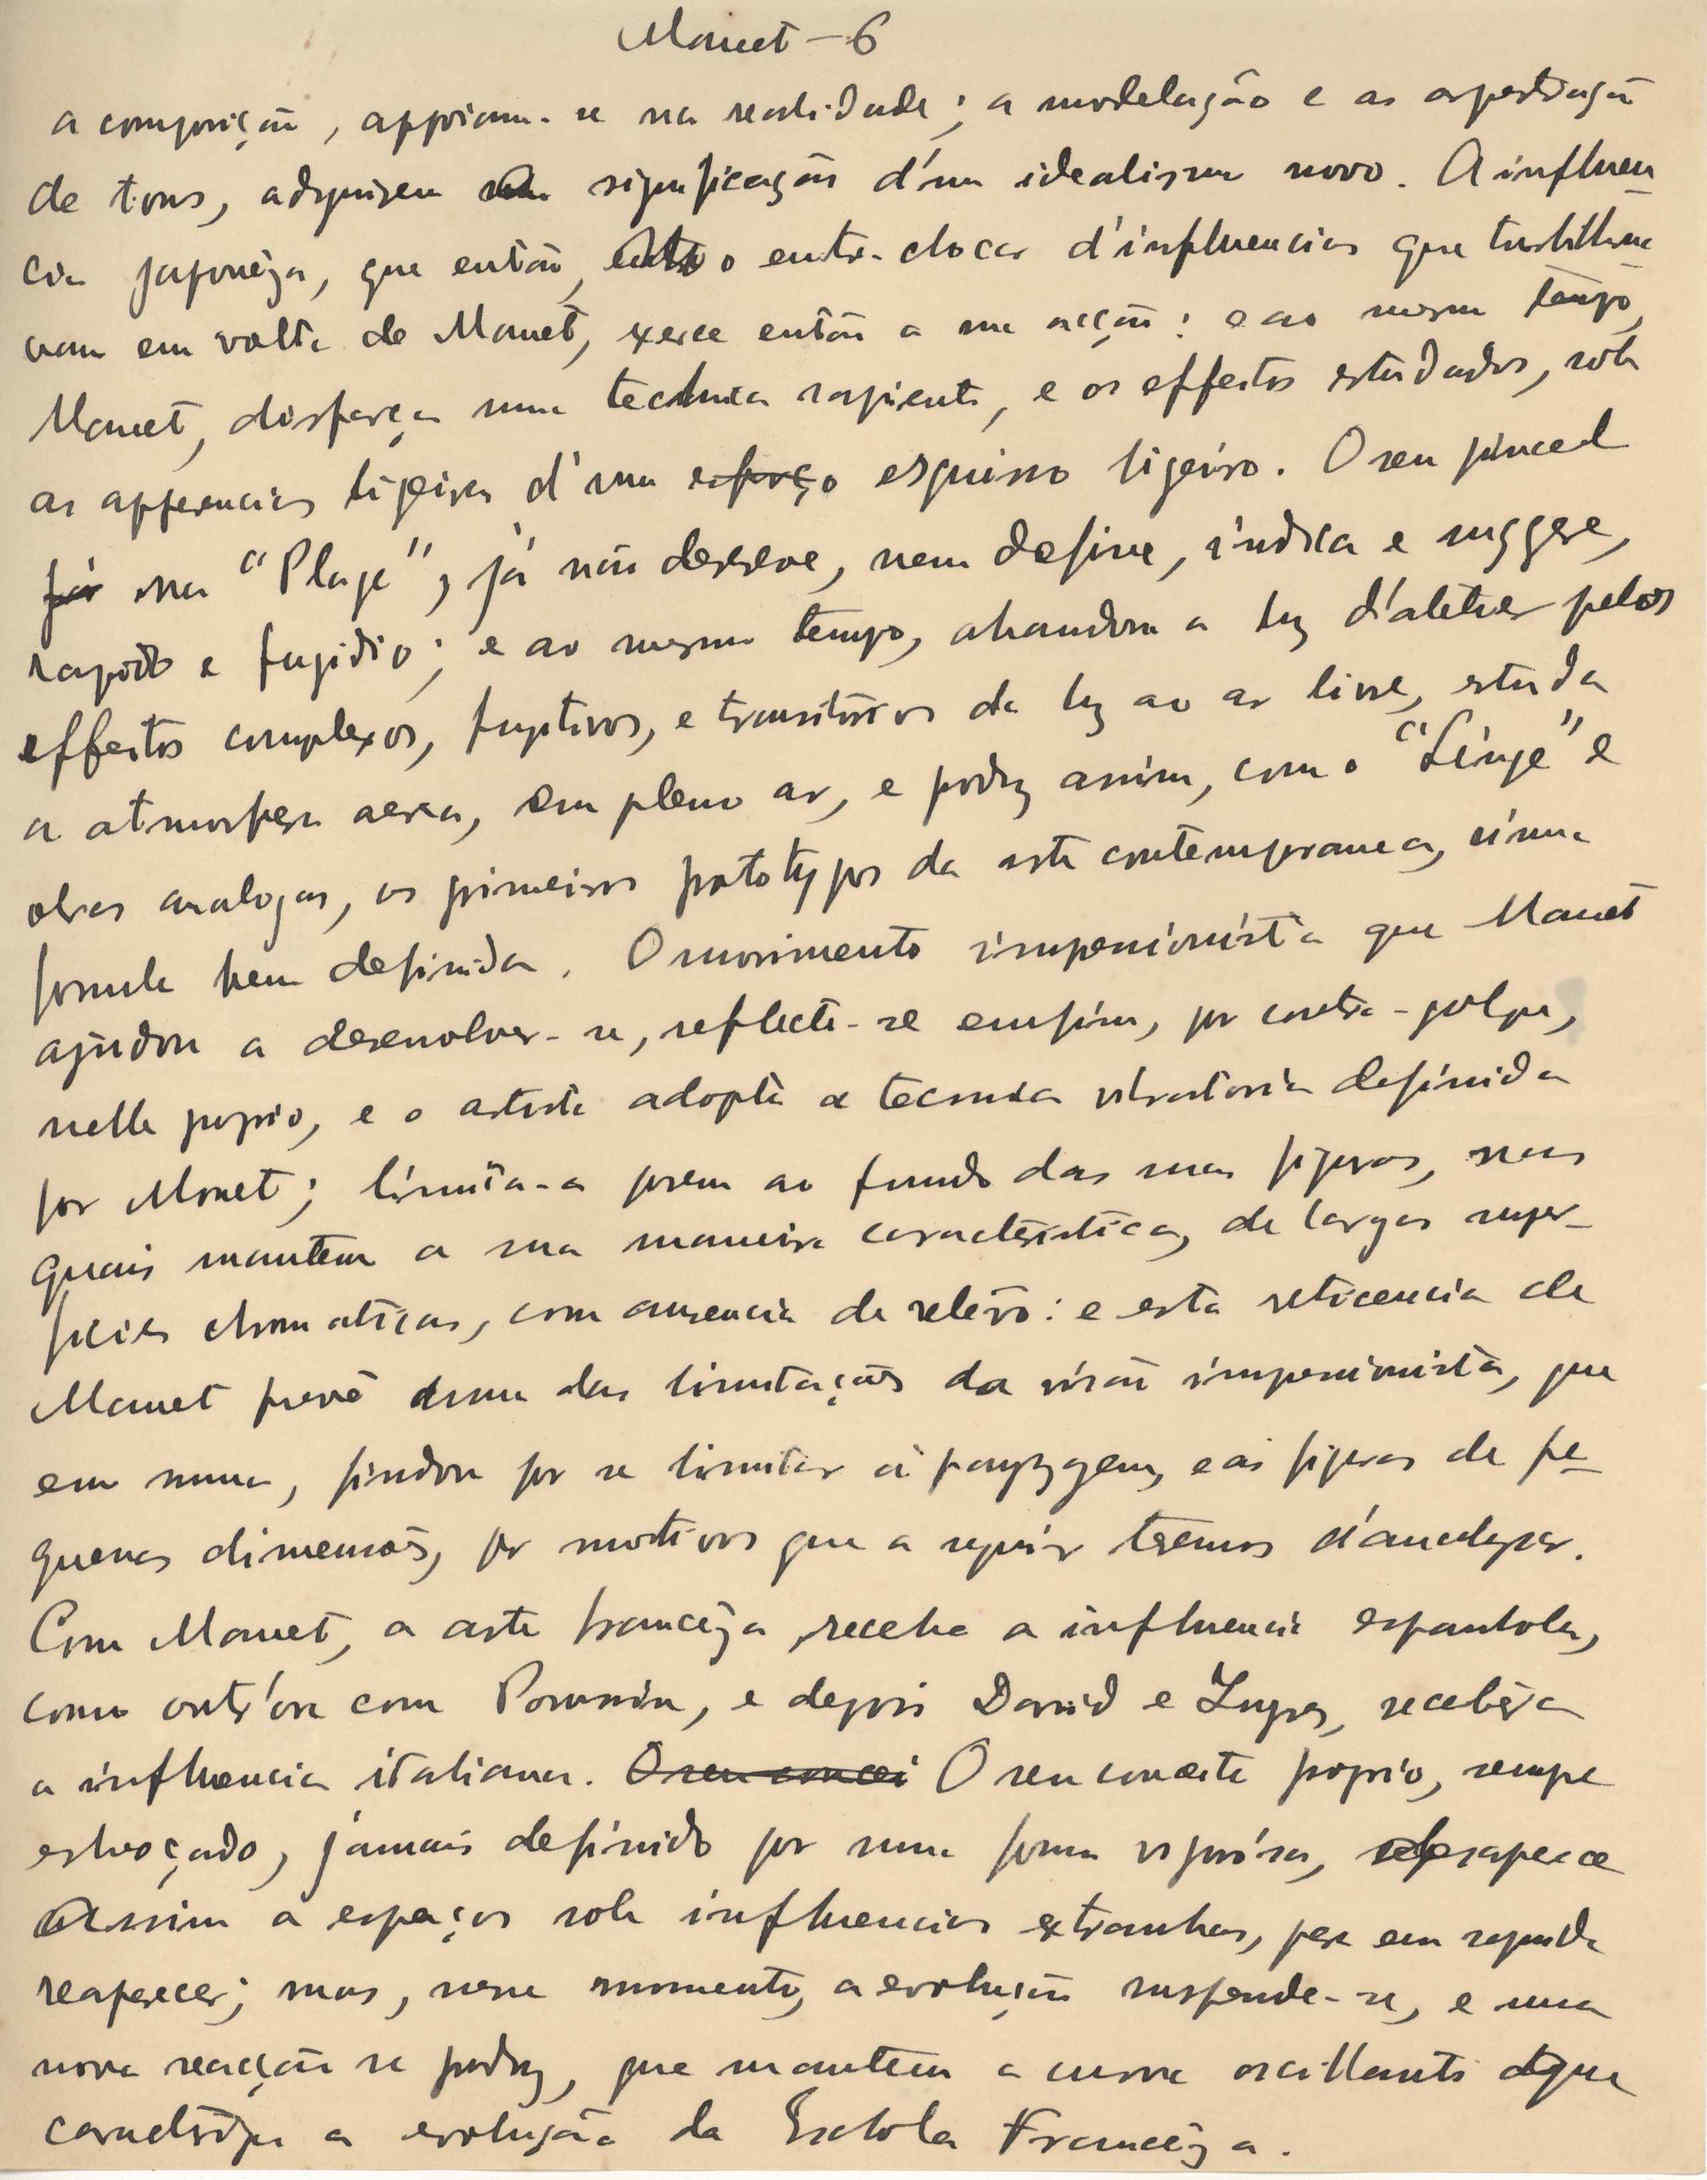 Manet - 6
a composição, appoiam-se na realidade; a modelação e as
de tons, adquirem significação d'um idealismo novo. A influen-
cia japoneza, que então, o entre-chocar d'influencias que turbilhona-
vam em volta de Manet, exerce então a sua acção: e ao mesmo tempo,
Manet, disfarça uma technica sapiente, e os effeitos estudados, sob
as apparencias ligeiras d'um esforço esquisso ligeiro. O seu pincel
já na "Plage", já não descreve, nem define, indica e suggere,
rapido e fugidio; e ao mesmo tempo, abandona a luz d'atelier pelos
effeitos complexos, fugitivos, e transitorios da luz ao ar livre, estuda
a atmosfera aerea, em pleno ar, e produz assim, com o "Linge" e
obras analogas, os primeiros prototypos da arte contemporanea, n'uma
formula bem definida. O movimento impressionista que Manet
ajudou a desenvolver-se, reflecte-se emfim, por contra-golpe,
nelle proprio, e o artista adopta a tecnica vibratoria definida
por Monet; limita-a porem ao fundo das suas figuras, nas
quais mantem a sua maneira caracteristica, de largas super-
ficies chromaticas, com ausencia de relevo: e esta reticencia de
Manet prevê uma das limitações da visão impressionista, que
em suma, findou por se limitar á payzagem, e ás figuras de pe-
quenas dimensões, por motivos que a seguir teremos d'analysar.
Com Manet, a arte franceza recebe a influencia espanhola,
como outr'ora com Poussin, e depois David e Ingres, recebêra
a influencia italiana. O seu concei O seu conceito proprio, sempre
esboçado, jamais definido por uma forma vigorosa, desaparece
assim a espaços sob influencias extranhas, para em seguida
reaparecer; mas, nesse momento, a evolução suspende-se, e uma
nova reacção se produz, que mantem a curva oscillante que
caracteriza a evolução da Escola Franceza.